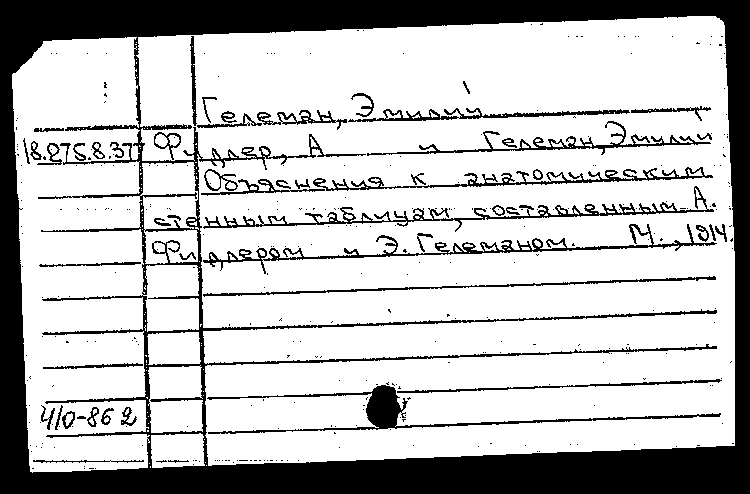 Гелеман, Эмилий
18.275.8.377 Фидлер, А и Гелеман, Эмилий
Объяснения к анатомическим
стенным таблицам, составленным А.
Фидлером и Э. Гелеманом. М., 1914.
410-86 2